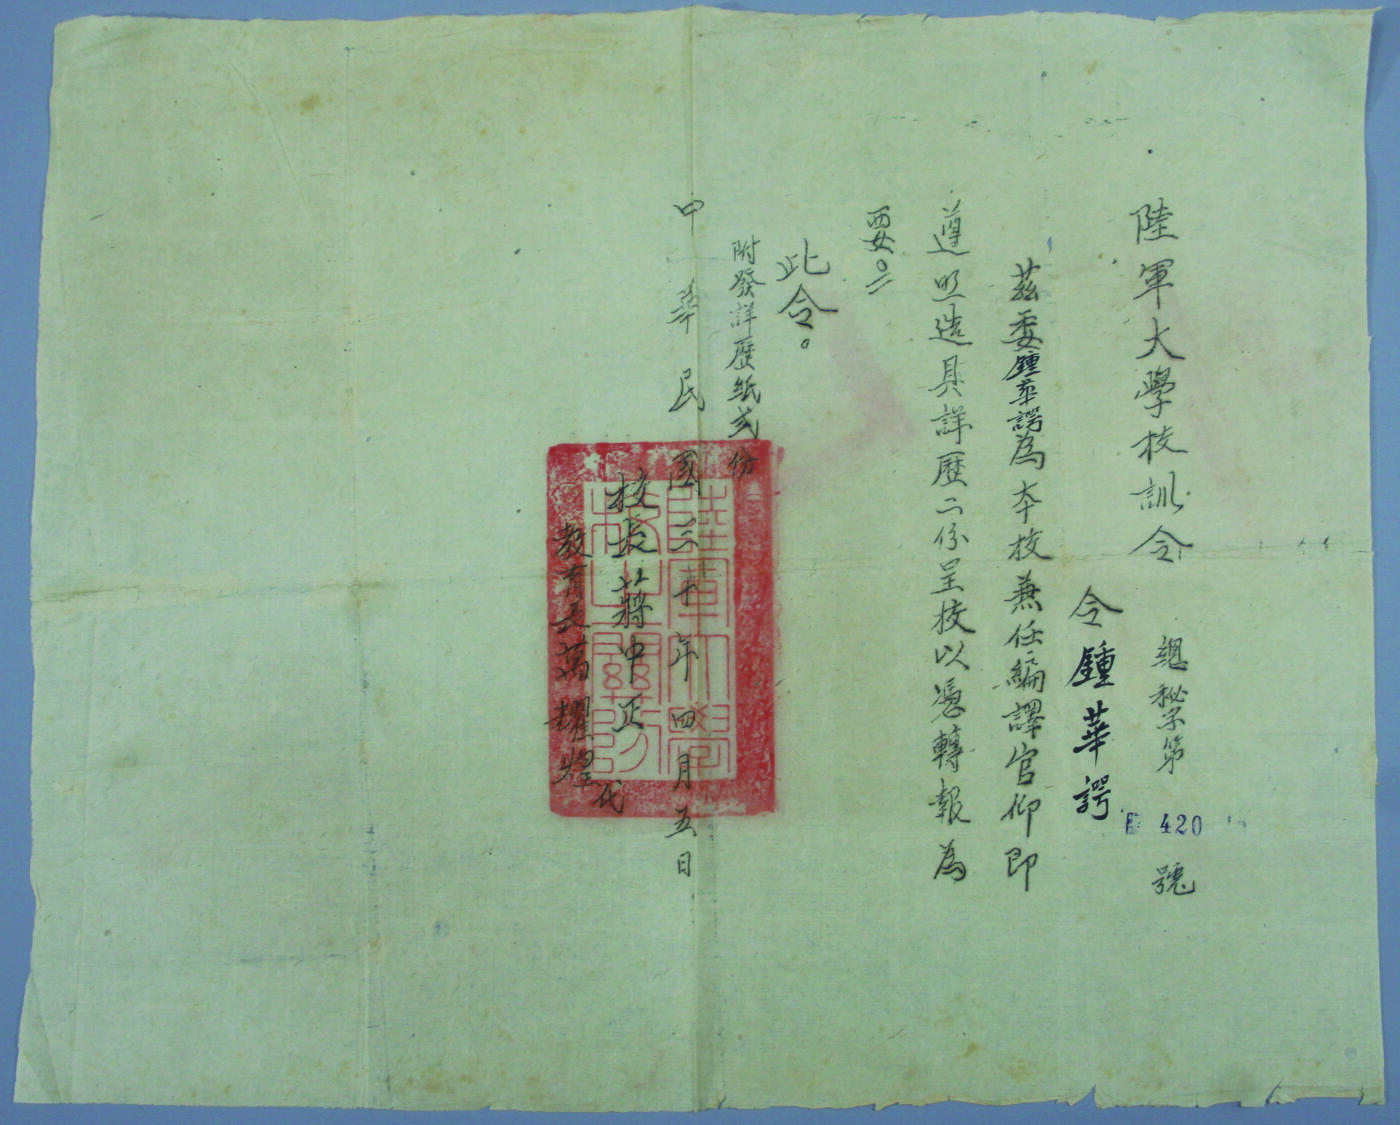 陸軍大學校訓令 總秘字第 420 號
令鍾華諤
茲委鍾華諤為本校兼任編譯官仰即
遵照造具詳歷二份呈校以憑轉報為
要。
此令。
附發詳歷紙弍份
中華民國三十年四月五日
校長蔣中正
教育長萬耀煌代